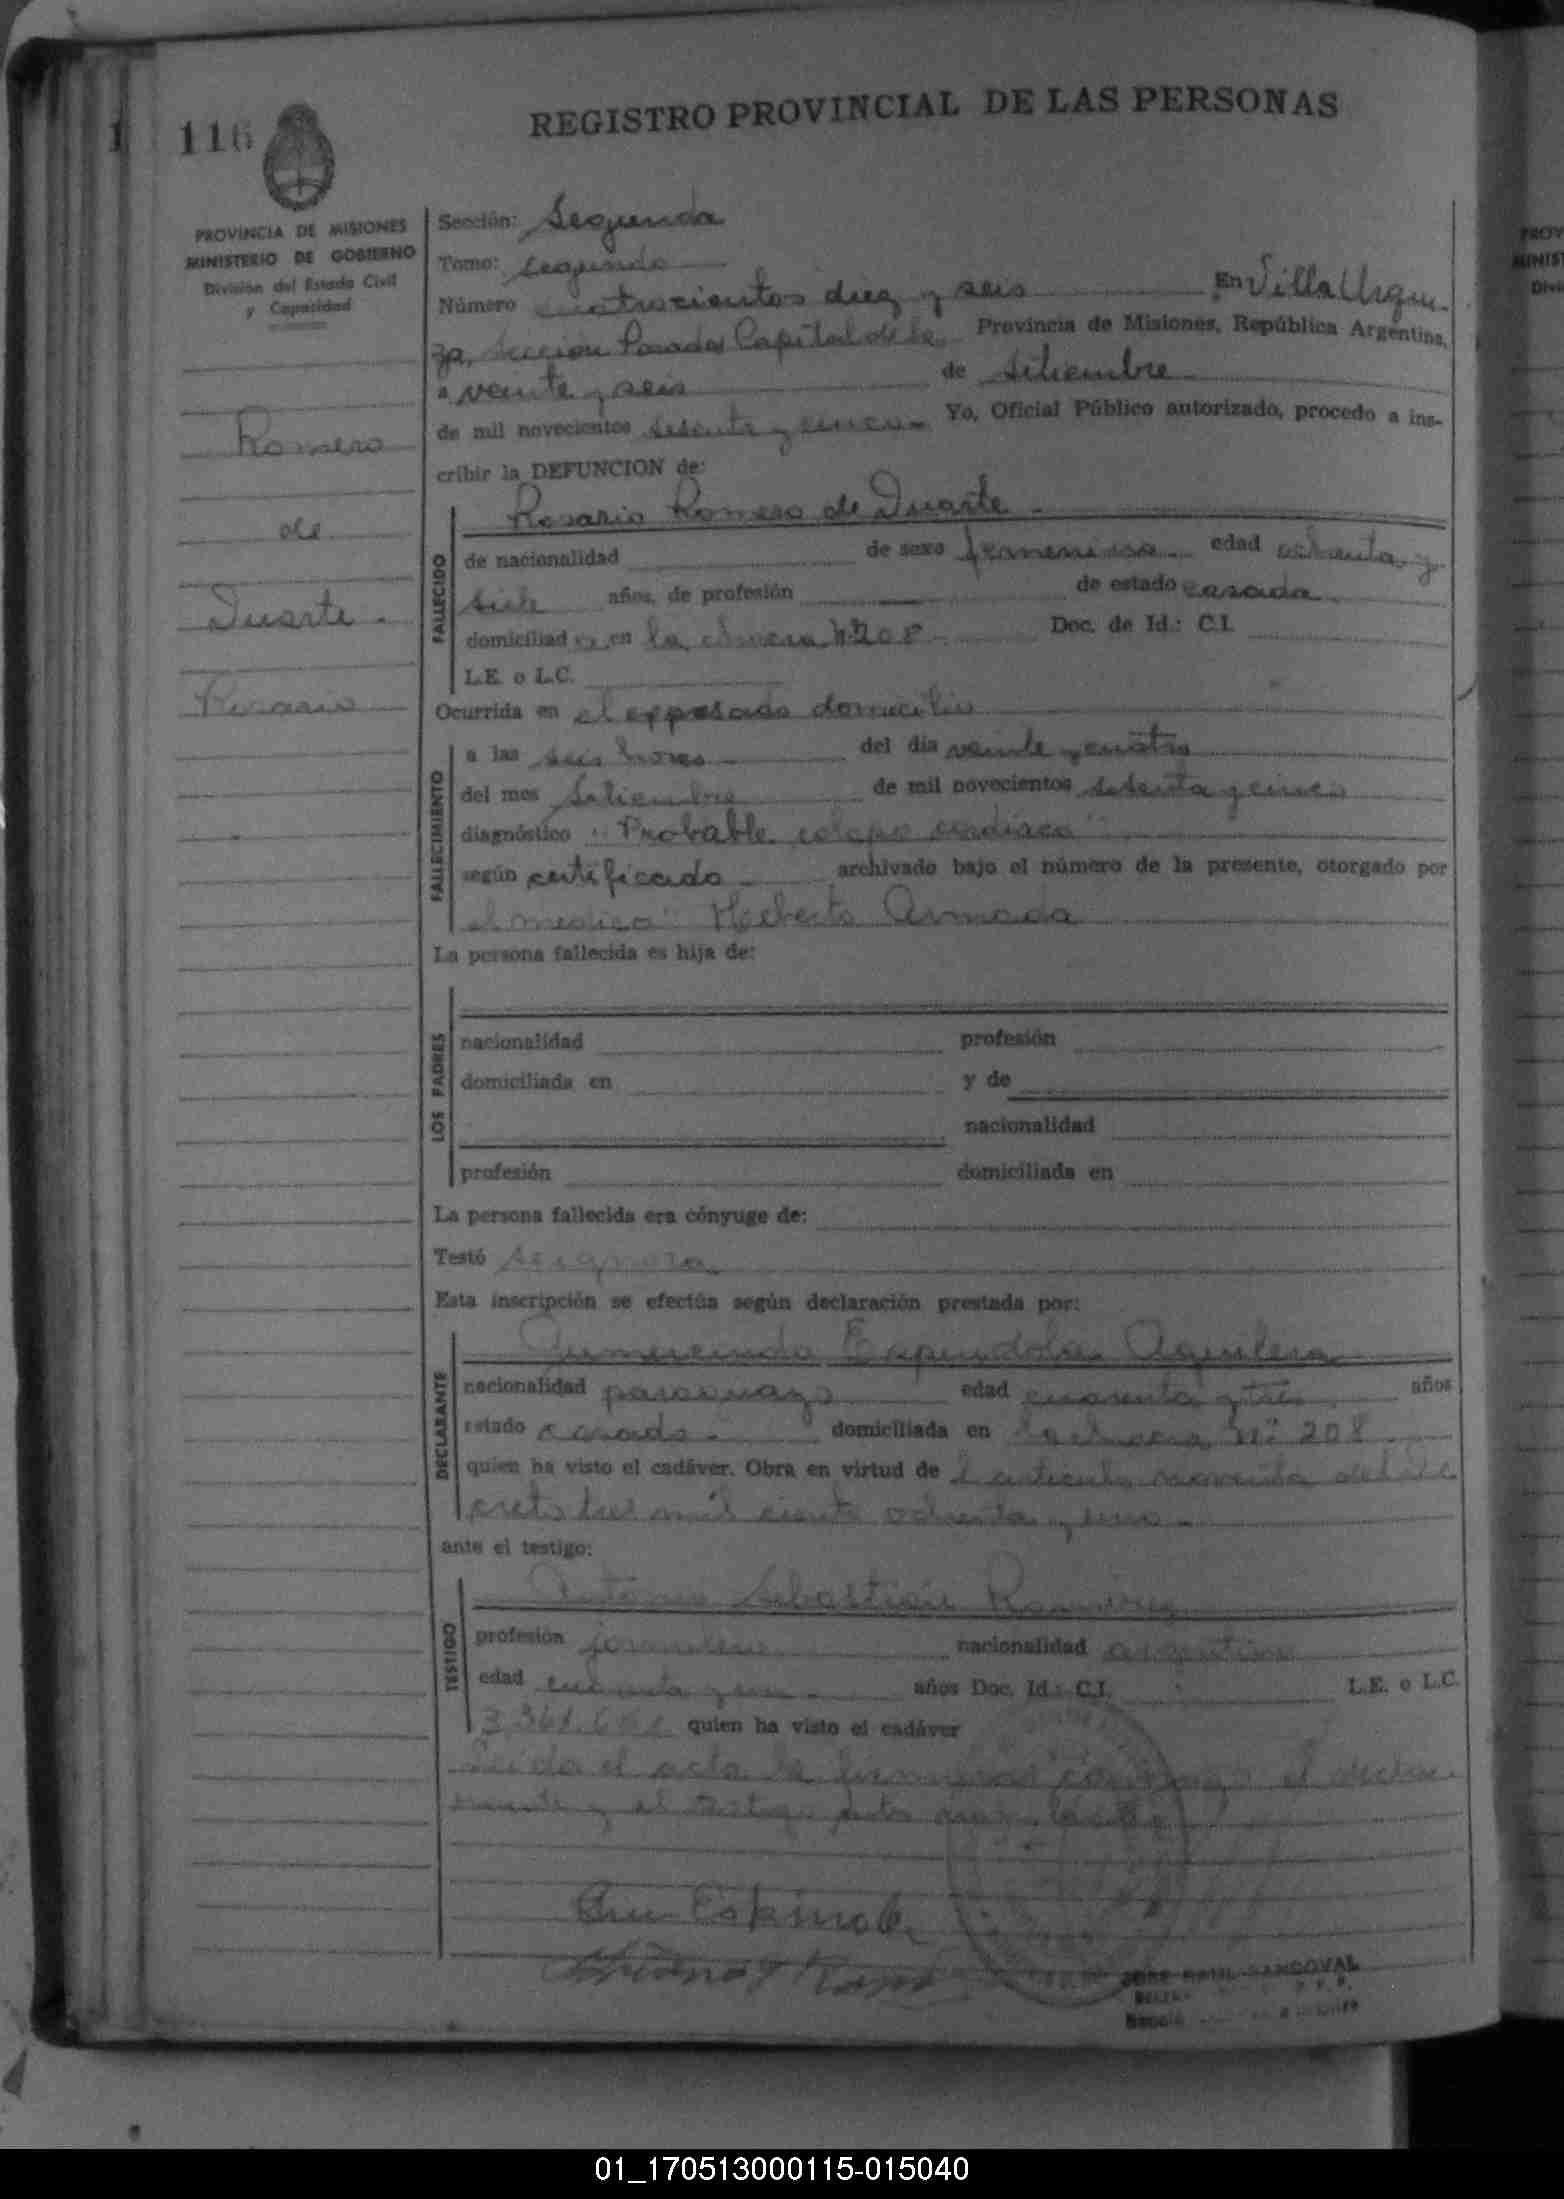 REGISTRO PROVINCIAL DE LAS PERSONAS
116
PROVINCIA DE MISIONES
MINISTERIO DE GOBIERNO
División del Estado Civil
y Capacidad
Romero
de
Duarte.
Rosario
Sección: Segunda
Tomo: segundo
Número cuatrocientos diez y seis En Villa Urqui-
za, Sección Posadas Capital de la Provincia de Misiones, República Argentina,
a veinte y seis de setiembre
de mil novecientos sesenta y cinco Yo, Oficial Público autorizado, procedo a ins-
cribir la DEFUNCION de:
FALLECIDO
Rosario Romero de Duarte
de nacionalidad de sexo femenino edad ochenta y
siete años, de profesión de estado casada
domiciliada en la chacra Nº 208 Doc. de Id.: C.I.
L.E. o L.C.
Ocurrida en el expresado domicilio
FALLECIMIENTO
a las seis horas del día veinte y cuatro
del mes Setiembre de mil novecientos sesenta y cinco
diagnóstico "Probable colapso cardiaco"
según certificado archivado bajo el número de la presente, otorgado por
el medico Armada
La persona fallecida es hija de:
LOS PADRES
nacionalidad profesión
domiciliada en y de
nacionalidad
profesión domiciliada en
La persona fallecida era cónyuge de:
Testó
Esta inscripción se efectúa según declaración prestada por:
DECLARANTE
Gumercindo Espindola Aguilera
nacionalidad paraguayo edad cuarenta y tres años
estado casado domiciliada en la chacra Nº 208
quien ha visto el cadáver. Obra en virtud de l articulo noventa del De
creto tres mil ciento ochenta y uno
ante el testigo:
TESTIGO
Antonio Sebastián Ramirez
profesión jornalero nacionalidad argentino
edad años Doc. Id.: C.I. L.E. o L.C.
quien ha visto el cadáver
Leida el acta la firmaron conmigo el decla-
rante y el testigo
Espinola
JOSE RAUL SANDOVAL
01_170513000115-015040